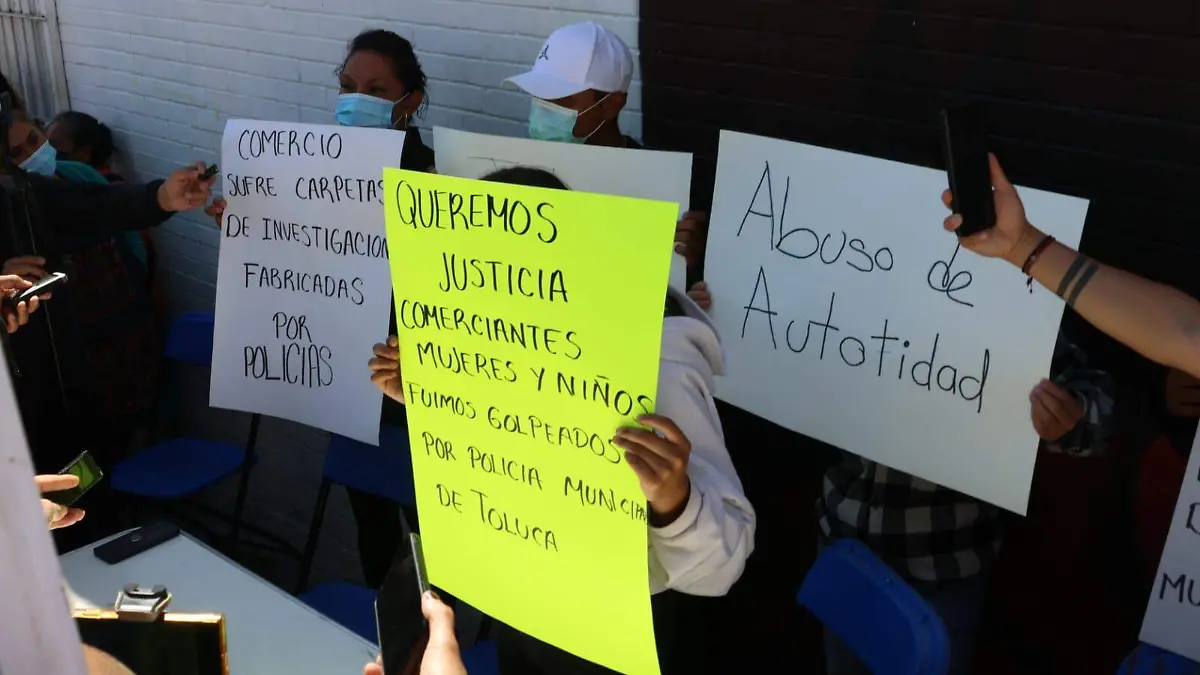 COMERCIO
SUFRE CARPETAS
DE INVESTIGACION
FABRICADAS
POR
POLICIAS
QUEREMOS
JUSTICIA
COMERCIANTES
MUJERES Y NIÑOS
FUIMOS GOLPEADOS
POR POLICIA MUNICIPAL
DE TOLUCA
Abuso de
Autotidad